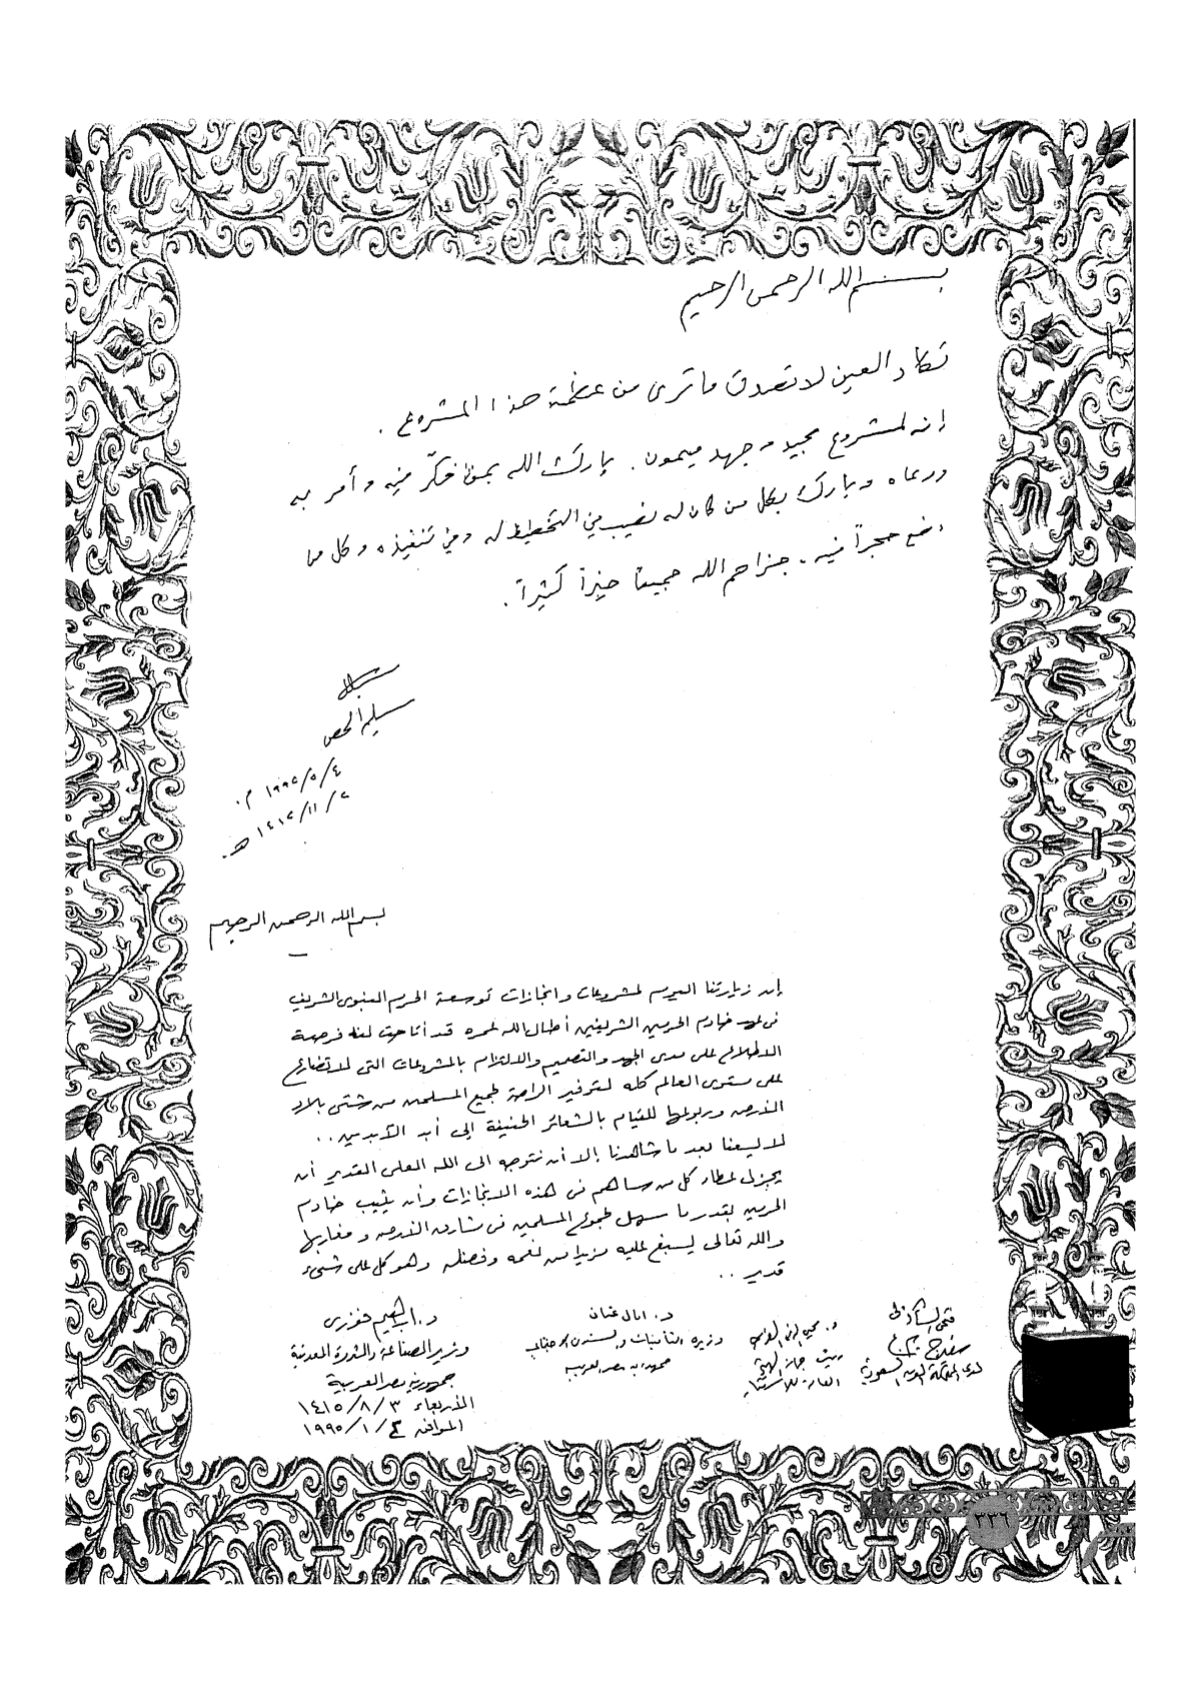 بسم الله الرحمن الرحيم
تكاد العين لا تصدق ما ترى من عظمة هذا المشروع .
إنه لمشروع مجيد وجهد ميمون . بارك الله بمن فكّر فيه وأمر به
ورعاه وبارك بكل من كان له نصيب في التخطيط له وفي تنفيذه وكل من
وضع حجراً فيه . جزاهم الله جميعاً خيراً كثيراً .
سليم الحص
٤/٥/١٩٩٢ م.
٢/١١/١٤١٢ هـ.
بسم الله الرحمن الرحيم
إن زيارتنا اليوم لمشروعات وانجازات توسعة الحرم النبوى الشريف
فى عهد خادم الحرمين الشريفين أطال الله عمره قد أتاحت لنا فرصة
الاطلاع على مدى الجهد والتصميم والالتزام بالمشروعات التى لا تضارع
على مستوى العالم كله لتوفير الراحة لجميع المسلمين من شتى بلاد
الأرض وربوعها للقيام بالشعائر الحنيفة إلى أبد الآبدين ..
لا يسعنا بعد ما شاهدنا إلا أن نتوجه الى الله العلى القدير أن
يجزل عطاء كل من ساهم فى هذه الانجازات وأن يثيب خادم
الحرمين بقدر ما سهل لجموع المسلمين فى مشارق الأرض ومغاربها
والله تعالى ليسبغ عليه مزيدا من نعمه وفضله وهو على كل شىء
قدير ..
فتحى الشاذلى
سفير
لدى المملكة العربية السعودية
د. محيى الدين الغريب
رئيس جهاز الهيئة
العامة للاستثمار
د. امال عثمان
وزيرة التأمينات والشئون الاجتماعية
جمهورية مصر العربية
د. ابراهيم فوزى
وزير الصناعة والثروة المعدنية
جمهورية مصر العربية
الأربعاء ٣/٨/١٤١٥
الموافق ٤/١/١٩٩٥
٣٣٦